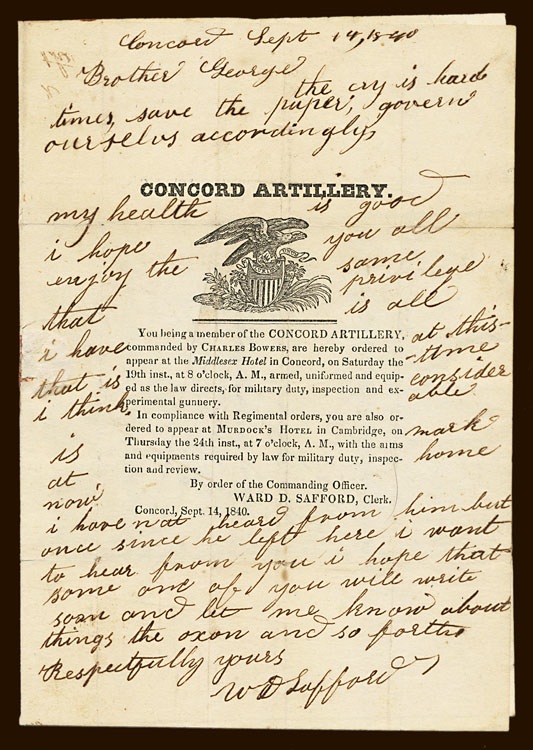 Concord Sept 14, 1840
Brother George
the cry is hard
times, save the paper, govern
ourselvs accordingly,
CONCORD ARTILLERY.
my health is good
i hope you all
enjoy the same
privilege
that is all
i have at this
time
that is consider
able
i think
mark
is home
at
now
You being a member of the CONCORD ARTILLERY,
commanded by CHARLES BOWERS, are hereby ordered to
appear at the Middlesex Hotel in Concord, on Saturday the
19th inst., at 8 o'clock, A. M., armed, uniformed and equip-
ped as the law directs, for military duty, inspection and ex-
perimental gunnery.
In compliance with Regimental orders, you are also or-
dered to appear at MURDOCK'S HOTEL in Cambridge, on
Thursday the 24th inst., at 7 o'clock, A. M., with the arms
and equipments required by law for military duty, inspec-
tion and review.
By order of the Commanding Officer.
WARD D. SAFFORD, Clerk.
Concord, Sept. 14, 1840.
i have not heard from him but
once since he left here i want
to hear from you i hope that
some one of you will write
soon and let me know about
things the oxon and so forth
Respectfully yours
W D Safford